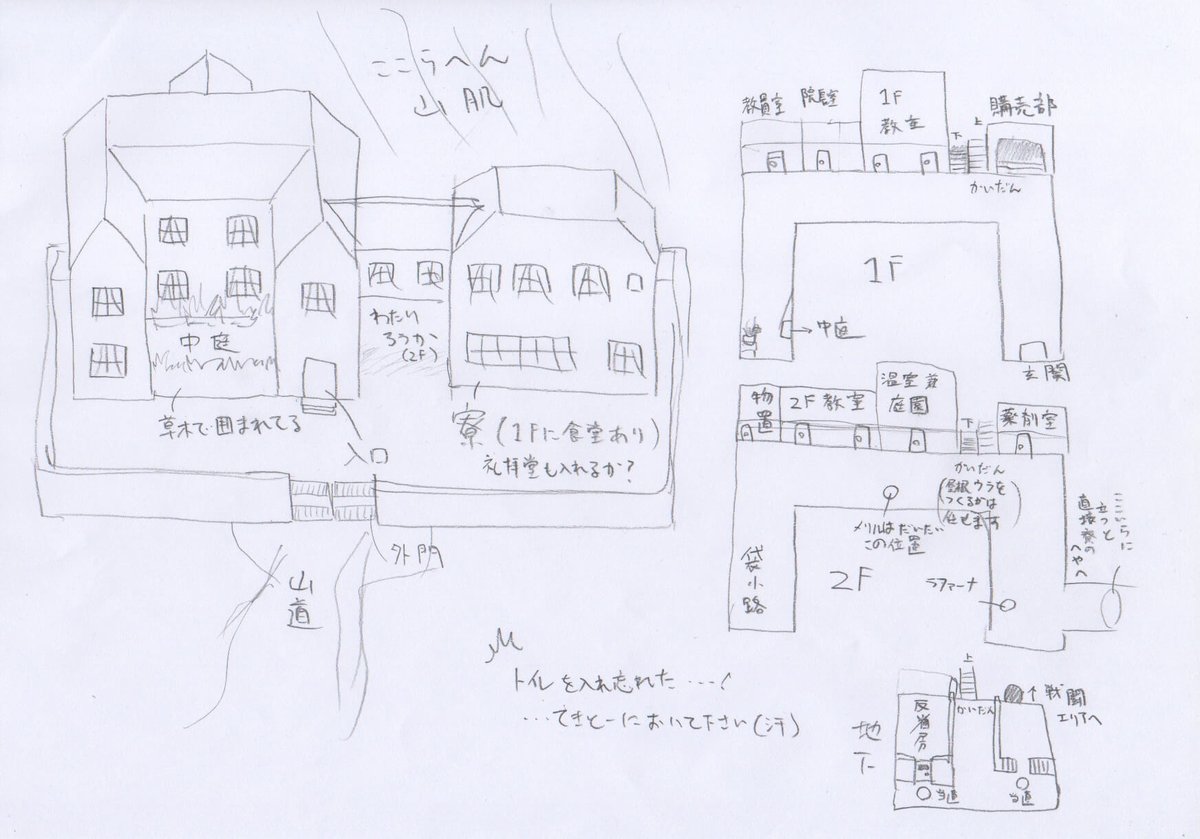 ここらへん
山肌
中庭
わたり
ろうか
(2F)
草木で囲まれてる
入口
寮(1Fに食堂あり)
礼拝堂も入れるか?
外門
山道
トイレを入れ忘れた・・・・!
・・・てきとーにおいて下さい(汗)
教員室
院長室
1F
教室
下
上
購売部
かいだん
1F
→中庭
玄関
物置
2F教室
温室
庭園
下
薬剤室
かいだん
(屋根ウラを
つくるかは
任せます)
メリルはだいたい
この位置
袋小路
2F
ラファーナ
ここいらに
立つと
直接寮の
へやへ
地下
反省房
上
かいだん
↑戦闘
エリアへ
当直
当直